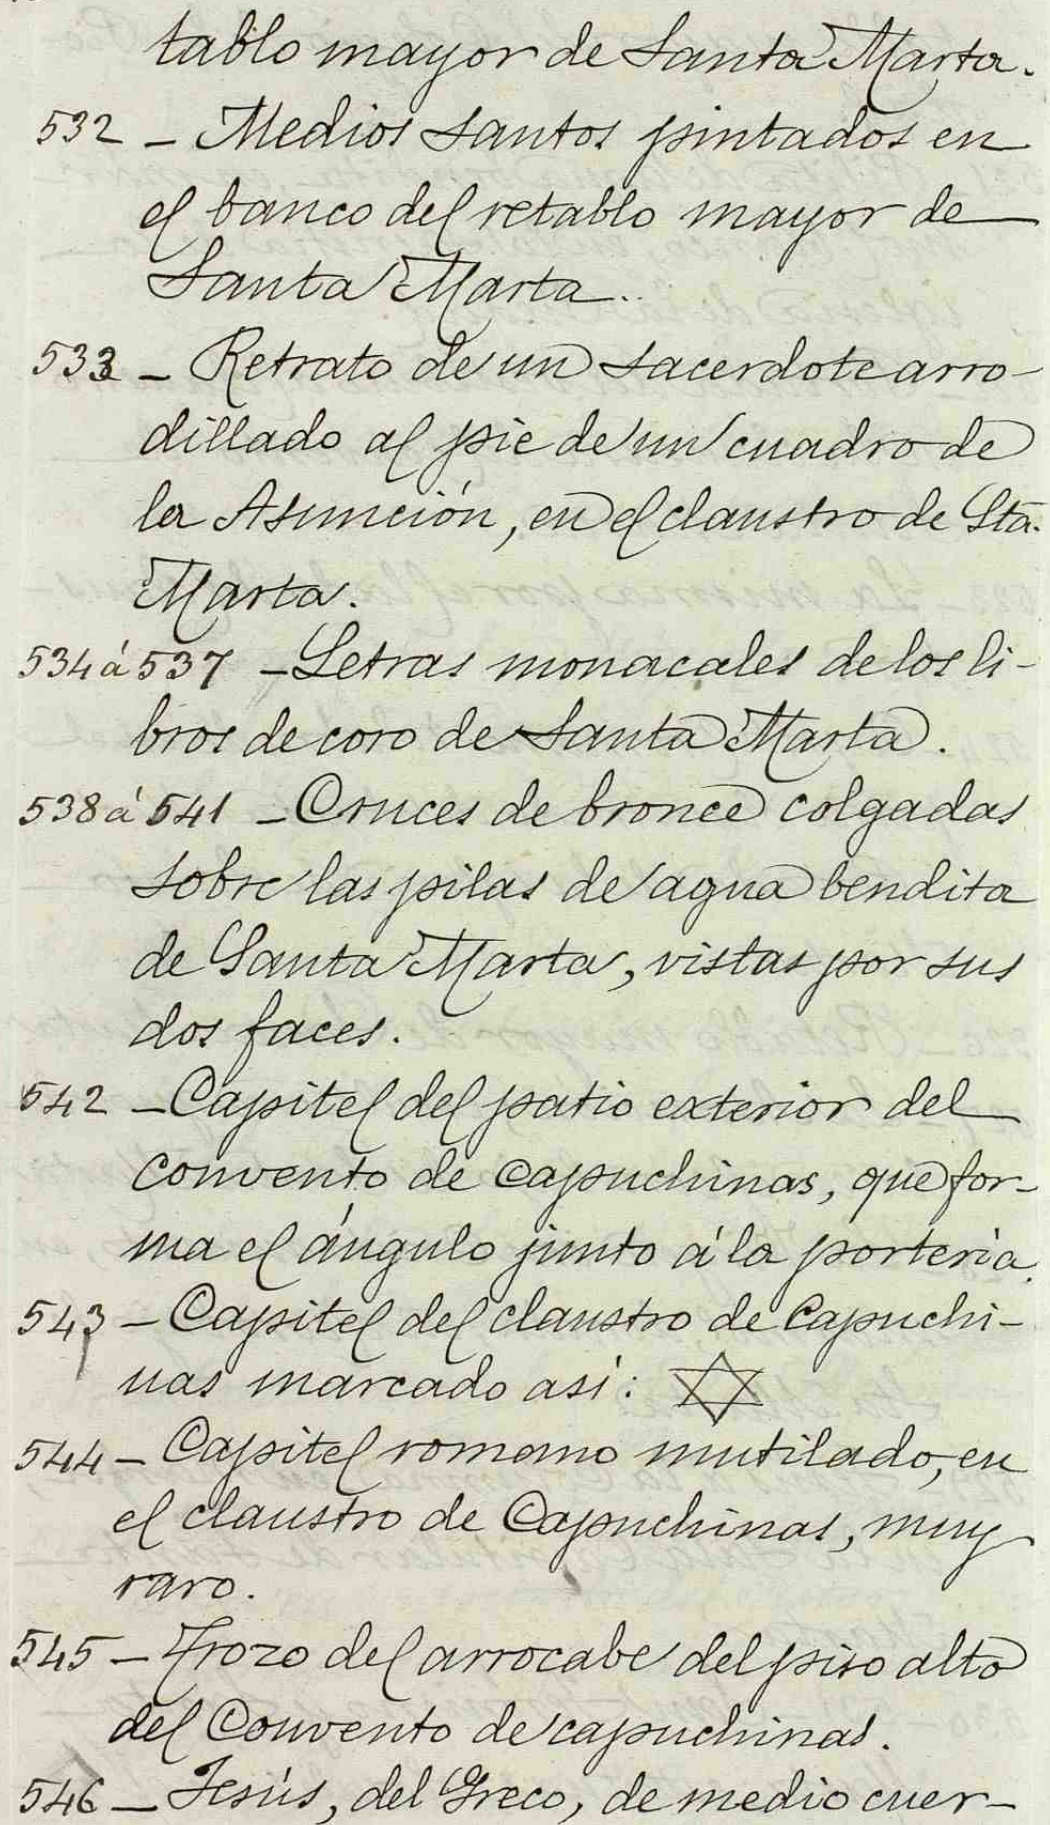 tablo mayor de Santa Marta.
532 - Medios santos pintados en
el banco del retablo mayor de
Santa Marta.
533 - Retrato de un sacerdote arro-
dillado al pie de un cuadro de
la Asunción, en el claustro de Sta.
Marta.
534 á 537 - Letras monacales de los li-
bros de coro de Santa Marta.
538 á 541 - Cruces de bronce colgadas
sobre las pilas de agua bendita
de Santa Marta, vistas por sus
dos faces.
542 - Capitel del patio exterior del
Convento de Capuchinas, que for-
ma el ángulo junto á la portería.
543 - Capitel del claustro de Capuchi-
nas marcado así: ✡
544 - Capitel romano mutilado, en
el claustro de Capuchinas, muy
raro.
545 - Trozo del arrocabe del piso alto
del Convento de capuchinas.
546 - Jesús, del Greco, de medio cuer-